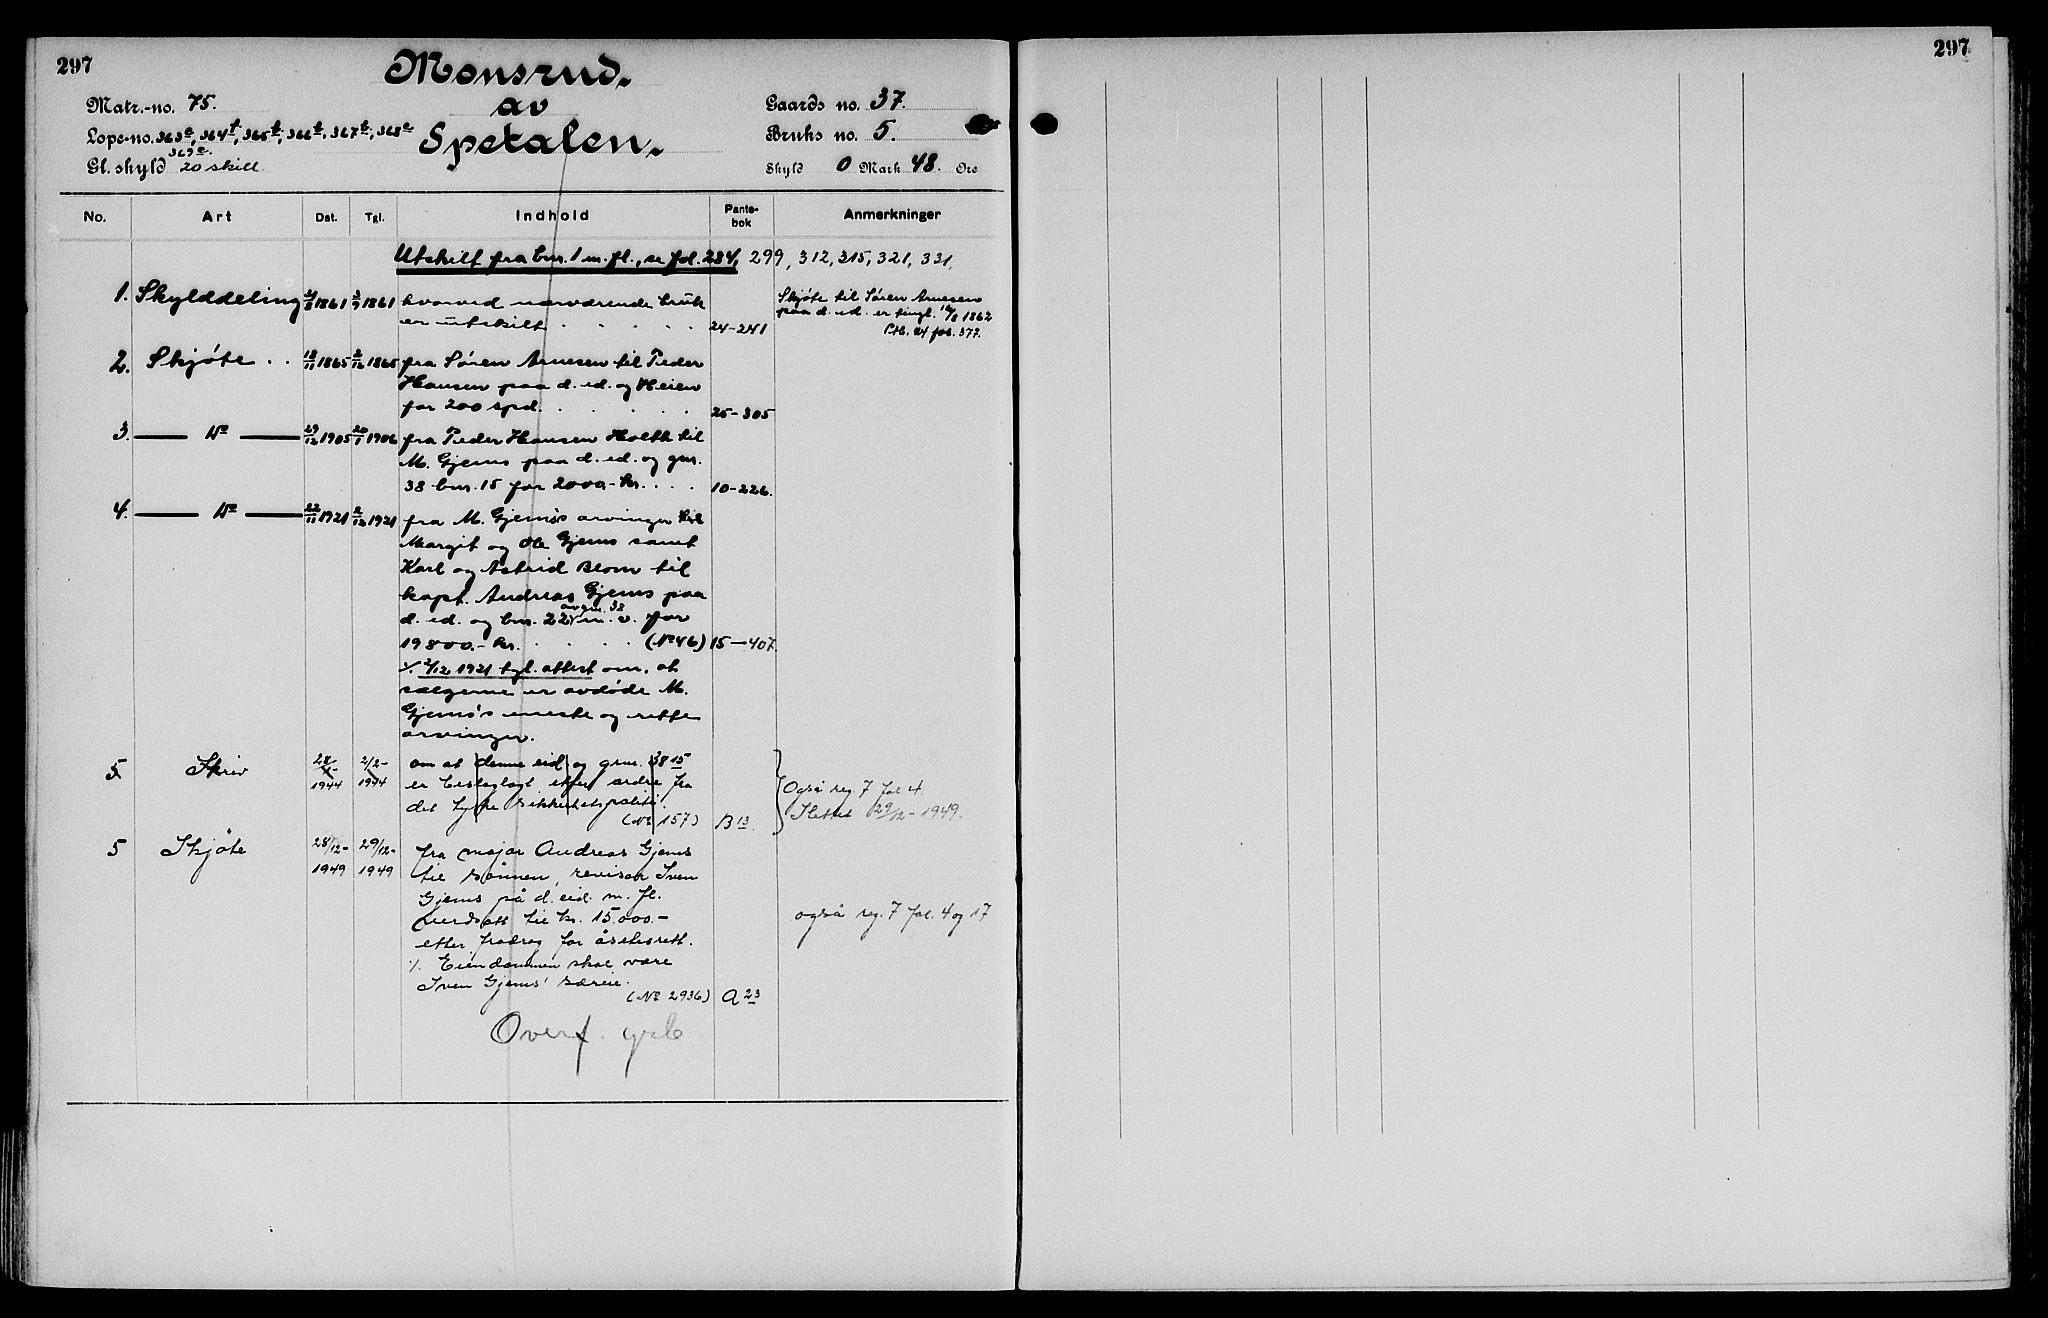 297
Monsrud.
av
Spetalen.
Matr.-no. 75.
Lope-no. 363e, 364f, 365f, 366f, 367f, 368e
369e.
Gl. skyld 20 skill.
Gaards no. 37.
Bruks no. 5.
Skyld 0 Mark 48. Øre
No. Art Dat. Tgl. Indhold Pante-bok Anmerkninger
Utskilt fra bnr. 1 m. fl., se fol. 284, 299, 312, 315, 321, 331,
1. Skylddeling 1861 1861 hvorved nærværende bruk
er utskilt . . . . . 24-241
Skjøte til Søren Arnesen
paa d. ed. er tingl. 1862
Ptb. 24 fol. 377.
2. Skjøte . . 18/11 1865 2/12 1865 fra Søren Arnesen til Peder
Hansen paa d. ed. og Heien
for 200 spd. . . . . . 25-305
3. — Do — 29/12 1905 20/1 1906 fra Peder Hansen Holth til
M. Gjems paa d. ed. og gnr.
38 bnr. 15 for 2000.- kr. . . . 10-226.
4. — Do — 22/11 1921 2/12 1921 fra M. Gjems's arvinger
Margit og Ole Gjems samt
Karl og Astrid Blom til
kapt. Andreas Gjems paa
d. ed. og bnr. 22 av gnr. 38 m. v. for
19800.- kr. . . . . . (No 46) 15-407.
./. 2/12 1921 tgl. attest om, at
sælgerne er avdøde M.
Gjems's eneste og rette
arvinger.
5 Skriv 28/1- 1944 2/2- 1944 om at denne eid og gnr. 38 15
er beslaglagt etter ordre fra
det tyske sikkerhetspoliti.
(No 157) B 13.
Også reg. 7 fol 4.
Slettet 29/12- 1949.
5 Skjöte 28/12- 1949 29/12- 1949 fra major Andreas Gjems
til sönnen, revisor Sven
Gjems på d. eid. m. fl.
verdsatt til kr. 15.000.-
etter fradrag for åsetesrett.
./. Eiendommen skal være
Sven Gjems' særeie.
(No 2936) A 23
også reg. 7 fol. 4 og 17
Overf.
297